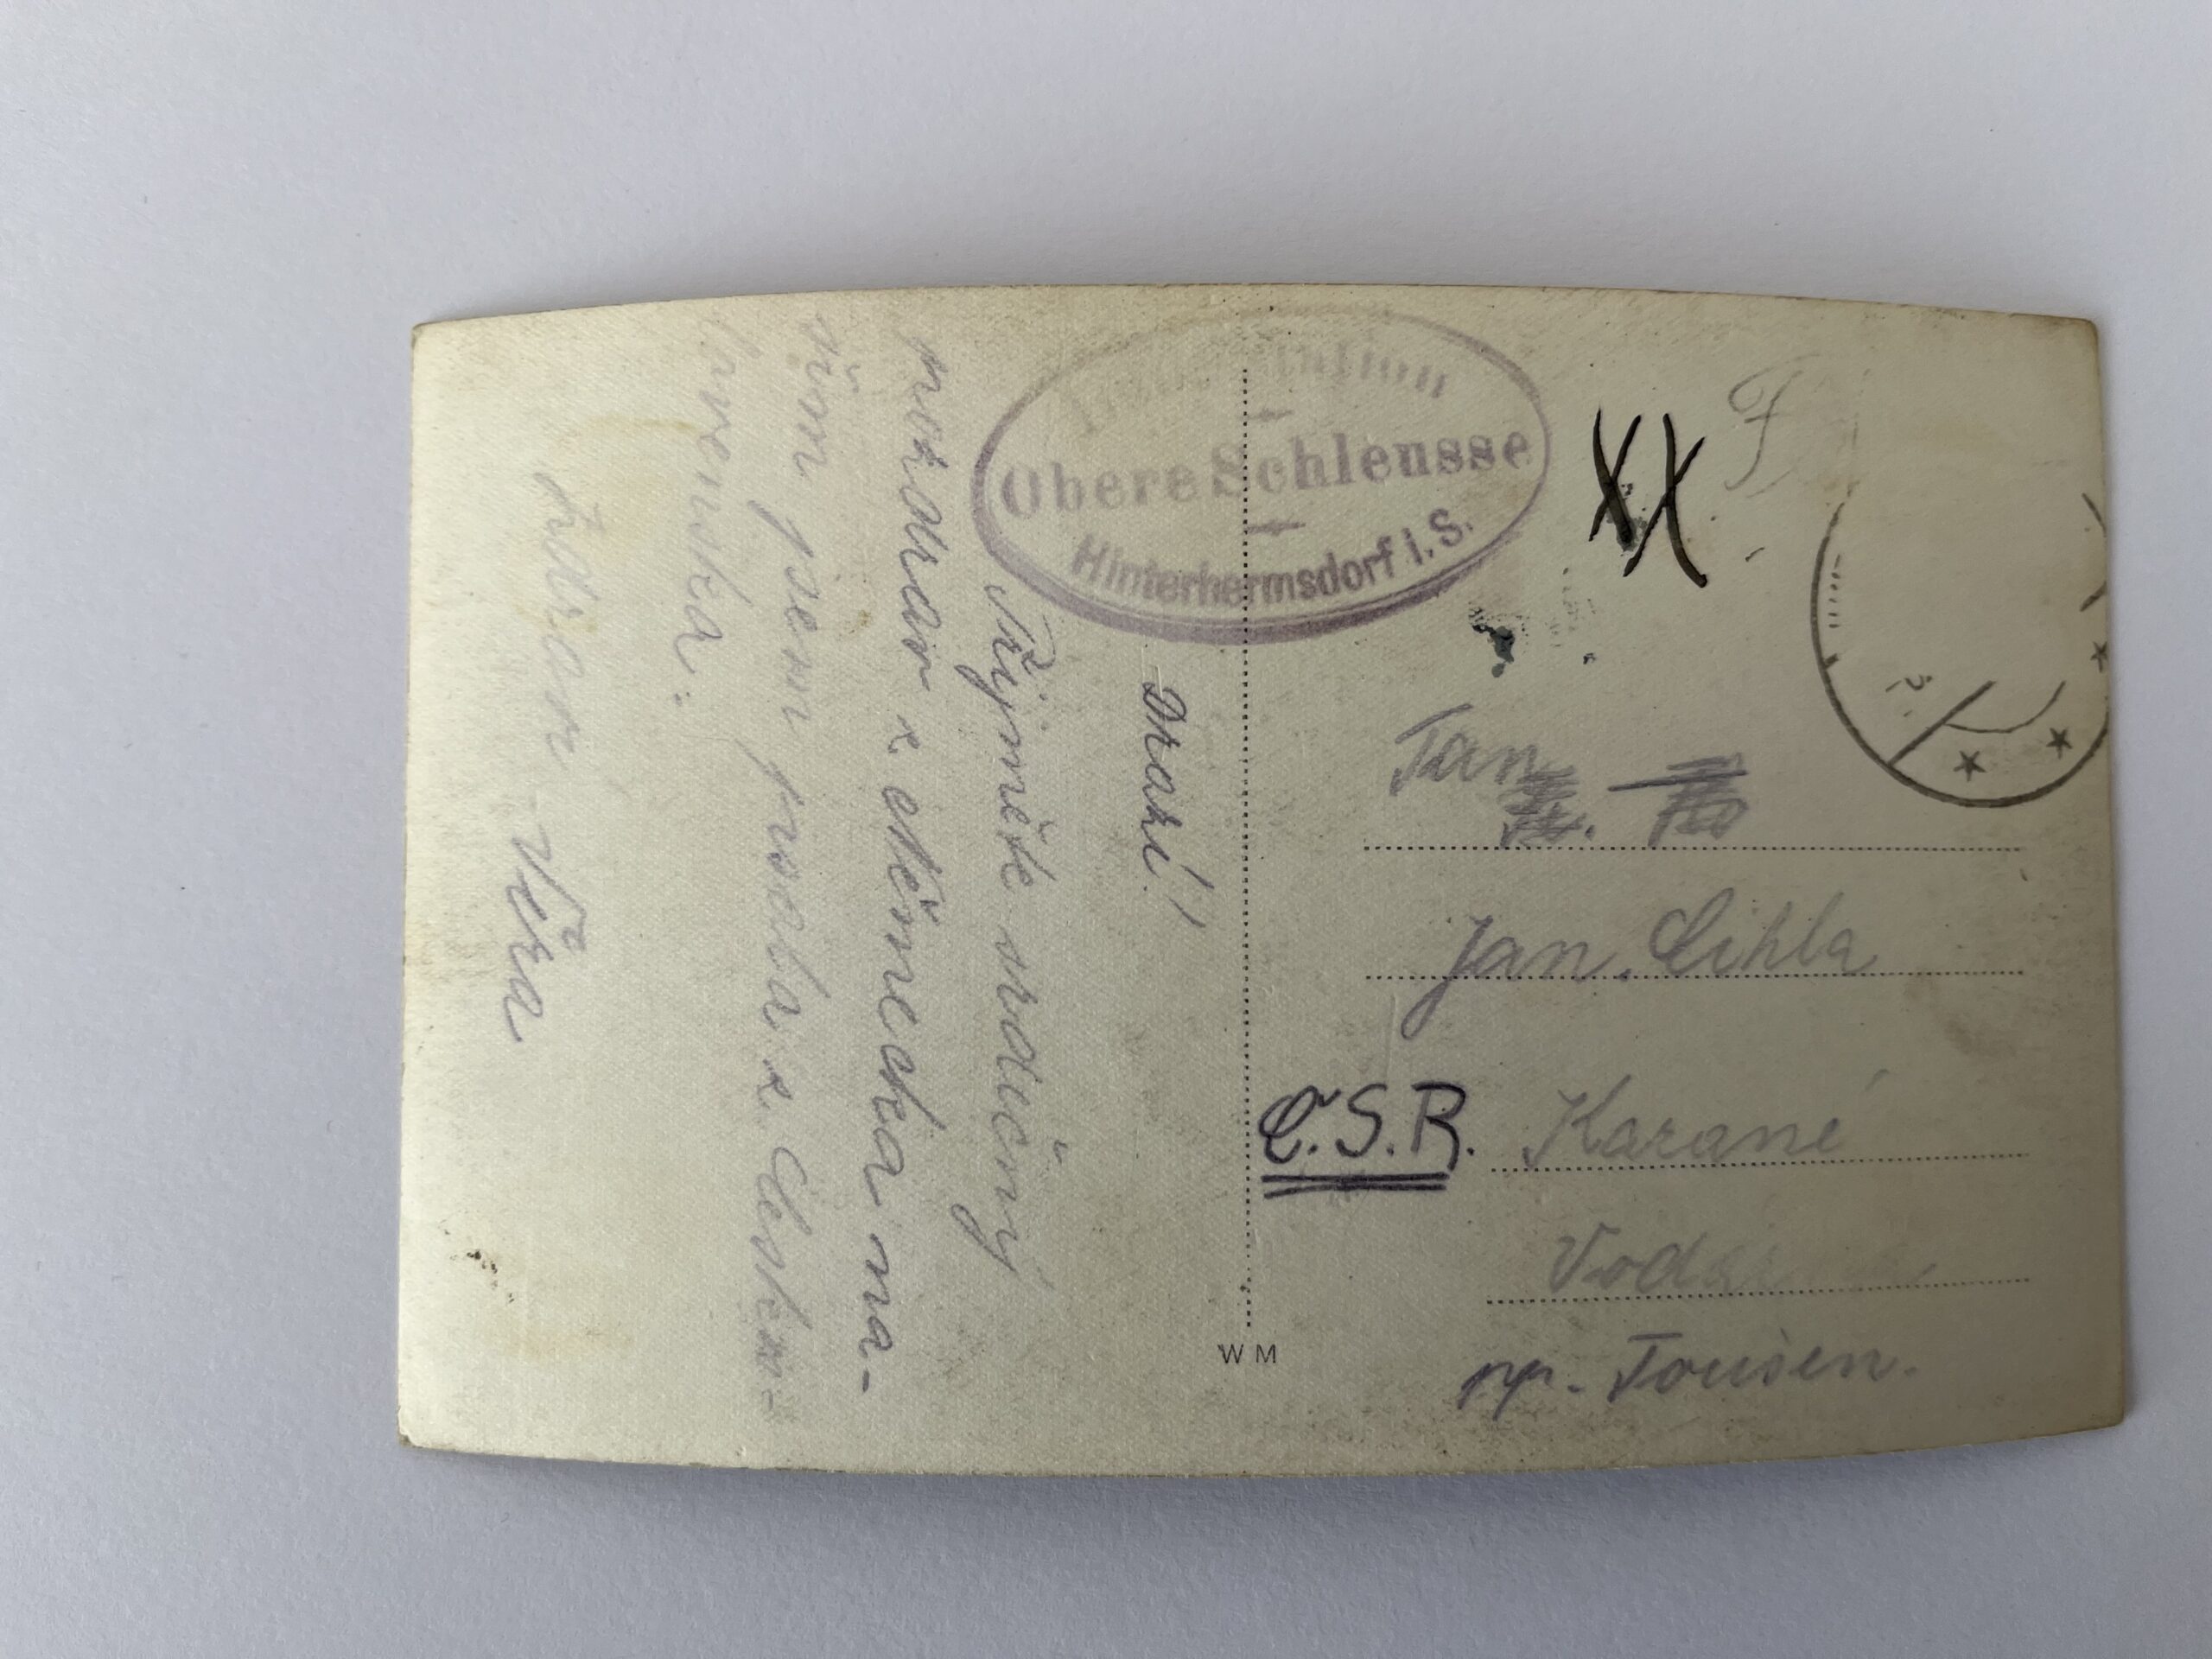 Obere Schleusse
Hinterhermsdorf i. S.
Drazí!
Přijměte srdečný
pozdrav z Německa na-
před jsem psala z Česko-
slovenska.
Zdraví Věra
XX
F
Pan
Jan. Cihla
Č.S.R. Karané
np. Toušeň.
W M